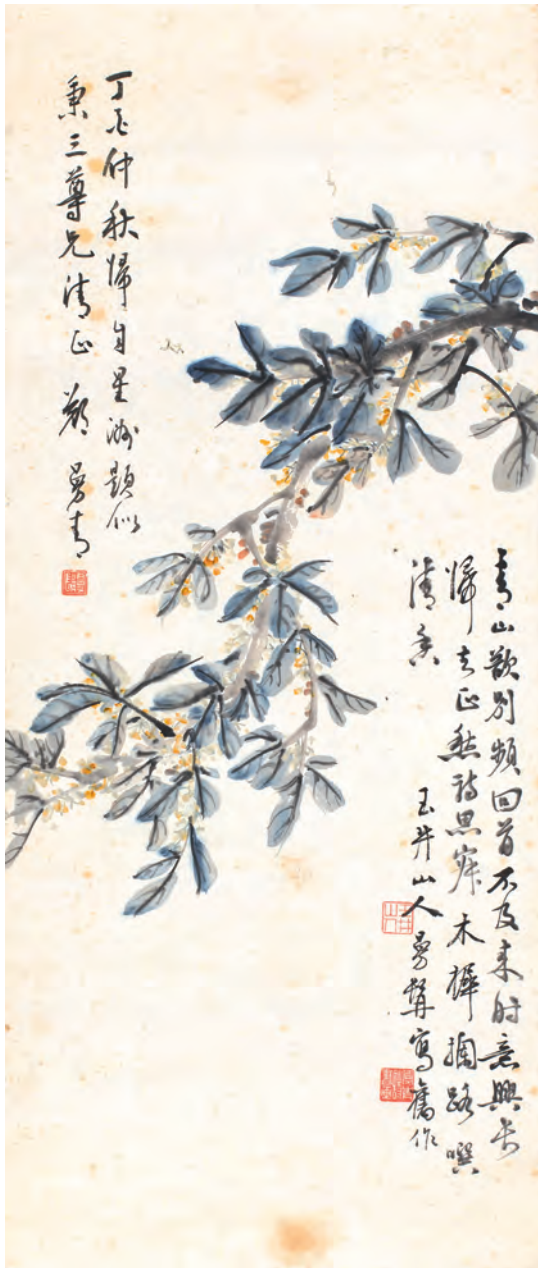 青山別頻回首不及來時意興長
歸去正愁詩思木樨攔路噀
清香
玉井山人曼髯寫舊作
丁亥仲秋歸自星洲題似
秉三尊兄清正 鄭曼青